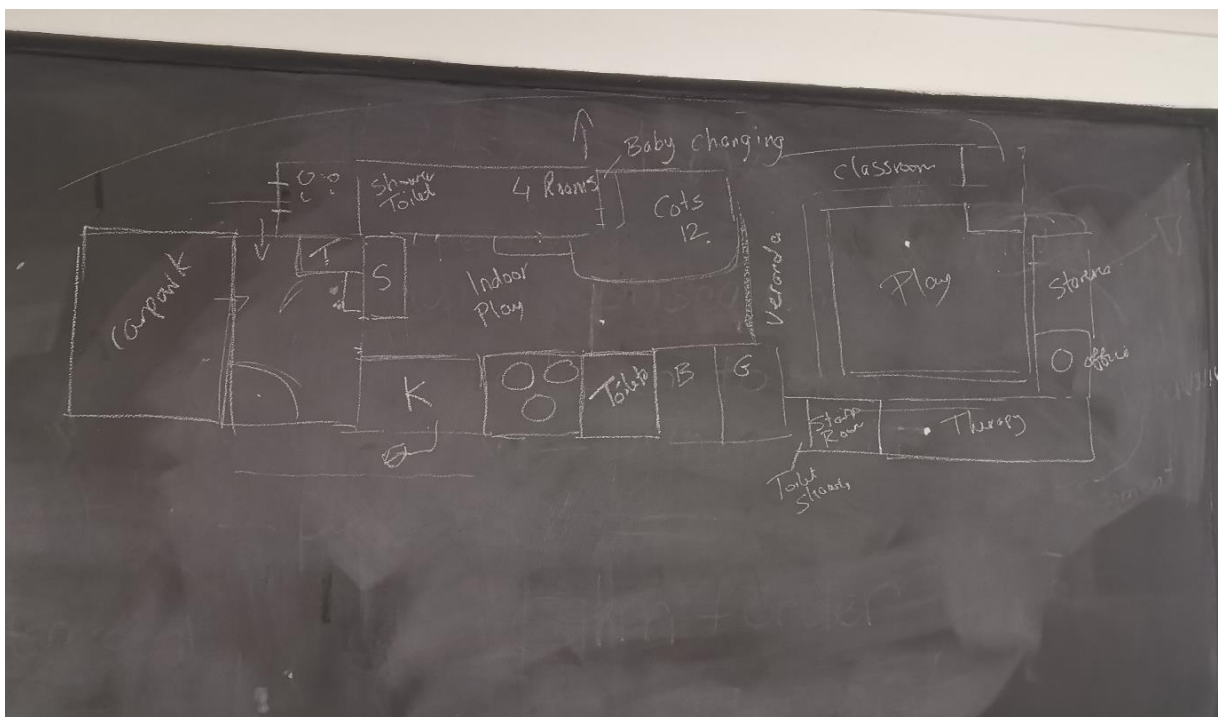 Baby changing
Shower
Toilet
4 Rooms
Cots
12
classroom
carpark
T
S
Indoor
Play
Veranda
Play
Storage
K
Toilets
B
G
office
Staff
Room
Therapy
Toilet
Shower